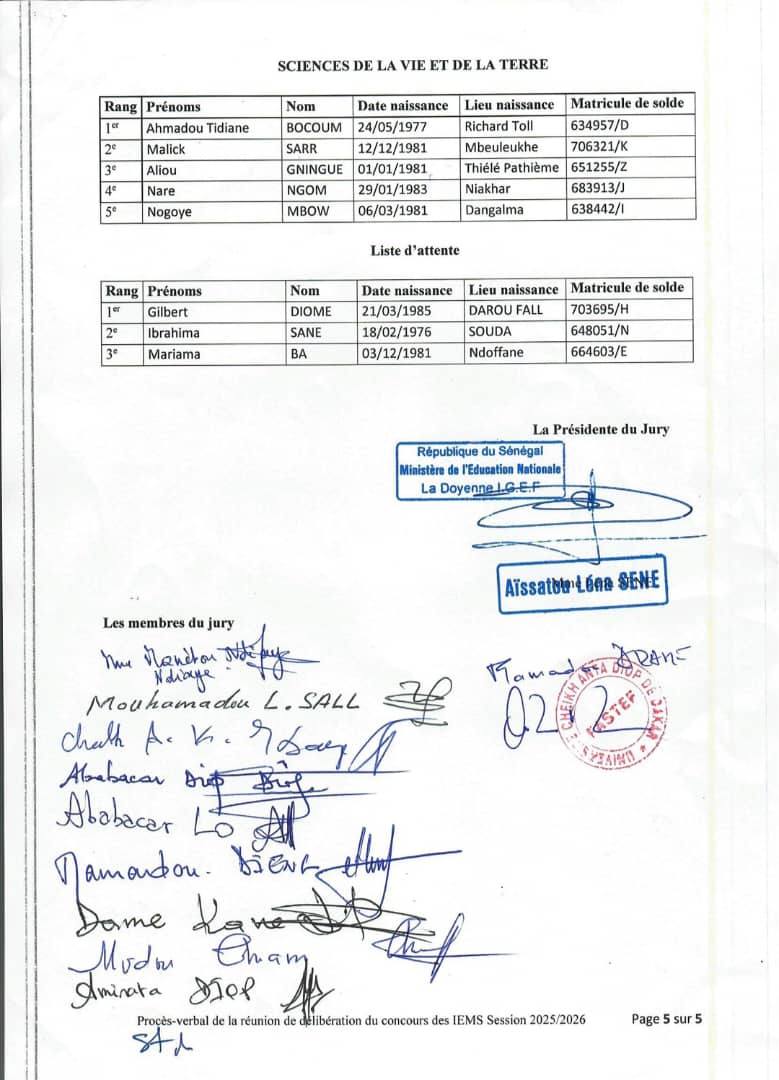 SCIENCES DE LA VIE ET DE LA TERRE
Rang Prénoms Nom Date naissance Lieu naissance Matricule de solde
1er Ahmadou Tidiane BOCOUM 24/05/1977 Richard Toll 634957/D
2e Malick SARR 12/12/1981 Mbeuleukhe 706321/K
3e Aliou GNINGUE 01/01/1981 Thiélé Pathième 651255/Z
4e Nare NGOM 29/01/1983 Niakhar 683913/J
5e Nogoye MBOW 06/03/1981 Dangalma 638442/I
Liste d'attente
Rang Prénoms Nom Date naissance Lieu naissance Matricule de solde
1er Gilbert DIOME 21/03/1985 DAROU FALL 703695/H
2e Ibrahima SANE 18/02/1976 SOUDA 648051/N
3e Mariama BA 03/12/1981 Ndoffane 664603/E
La Présidente du Jury
République du Sénégal
Ministère de l'Education Nationale
La Doyenne I.G.E.F
Aïssatou Léna SENE
Les membres du jury
Mme
Ndiaye
Mouhamadou L. SALL
Mamadou DRAME
CHEIKH ANTA DIOP DE DAKAR
FASTEF
UNIVERS
Cheikh A. K.
Ababacar Diop
Ababacar Lo
Mamadou DIENG
Dame Kane
Modou Thiam
Aminata DIOP
Procès-verbal de la réunion de délibération du concours des IEMS Session 2025/2026 Page 5 sur 5